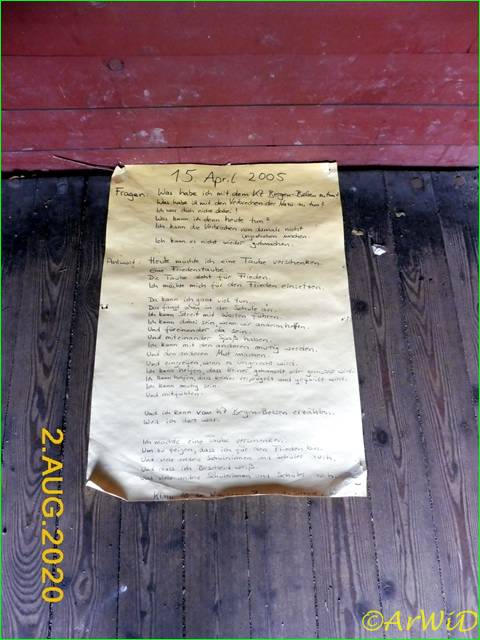 15 April 2005
Fragen: Was habe ich mit dem KZ Bergen-Belsen zu tun?
Was habe ich mit den Verbrechen der Nazis zu tun?
Ich war doch nicht dabei!
Was kann ich denn heute tun?
Ich kann die Verbrechen von damals nicht
ungeschehen machen.
Ich kann es nicht wieder gutmachen.
Antwort: Heute möchte ich eine Taube verschenken.
Eine Friedenstaube.
Die Taube steht für Frieden.
Ich möchte mich für den Frieden einsetzen.
Da kann ich ganz viel tun.
Das fängt schon in der Schule an.
Ich kann Streit mit Worten führen.
Ich kann dabei sein, wenn wir anderen helfen.
Und füreinander da sein.
Und miteinander Spaß haben.
Ich kann mit den anderen mutig werden.
Und den anderen Mut machen.
Und eingreifen, wenn es ungerecht wird.
Ich kann helfen, dass keiner gehänselt oder gemobbt wird.
Ich kann helfen, dass keiner verprügelt und gequält wird.
Ich kann mutig sein.
Und
Und ich kann vom KZ Bergen-Belsen erzählen.
Weil ich dort war.
Ich möchte eine Taube verschenken.
Um zu zeigen, dass ich für den Frieden bin.
Und viele andere Schülerinnen und Schüler auch.
Und dass ich Bescheid weiß.
Und viele andere Schülerinnen und Schüler auch.
2.AUG.2020
©ArWiD